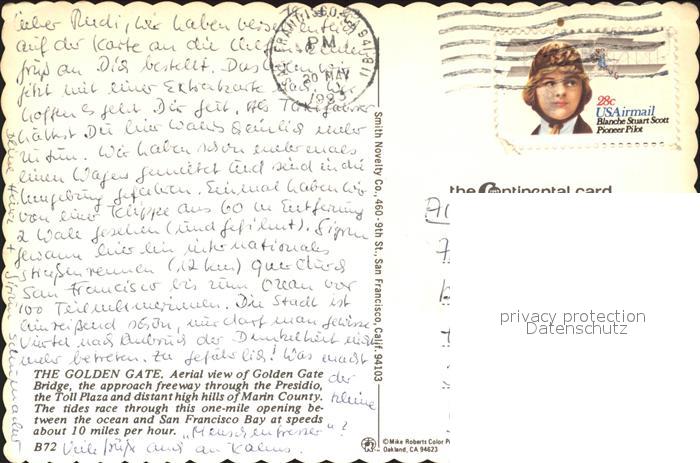 Lieber Rudi, wir haben
auf der Karte an die
an Dich bestellt. Das
jetzt mit einer Extrakarte nach. Wir
hoffen es geht Dir gut. Als Taxifahrer
hättest Du hier wahrscheinlich mehr
zu tun. Wir haben schon mehrmals
einen Wagen gemietet und sind in die
Umgebung gefahren. Einmal haben wir
von einer Klippe aus 60 m Entfernung
2 Wale gesehen (und gefilmt). Sigrun
gewann hier ein internationales
Straßenrennen (12 km) quer durch
San Francisco bis zum Ozean vor
100 Teilnehmerinnen. Die Stadt ist
hinreißend schön, nur darf man gewisse
Viertel nach Einbruch der Dunkelheit nicht
mehr betreten. Zu gefährlich! Was macht
der
kleine
"Menschenfresser"?
Viele Grüße auch an
THE GOLDEN GATE. Aerial view of Golden Gate
Bridge, the approach freeway through the Presidio,
the Toll Plaza and distant high hills of Marin County.
The tides race through this one-mile opening be-
tween the ocean and San Francisco Bay at speeds
about 10 miles per hour.
B72
Smith Novelty Co., 460-9th St., San Francisco, Calif. 94103
©Mike Roberts Color P
Oakland, CA 94623
PM
20 MAY
28c
USAirmail
Blanche Stuart Scott
Pioneer Pilot
the Continental card
privacy protection
Datenschutz